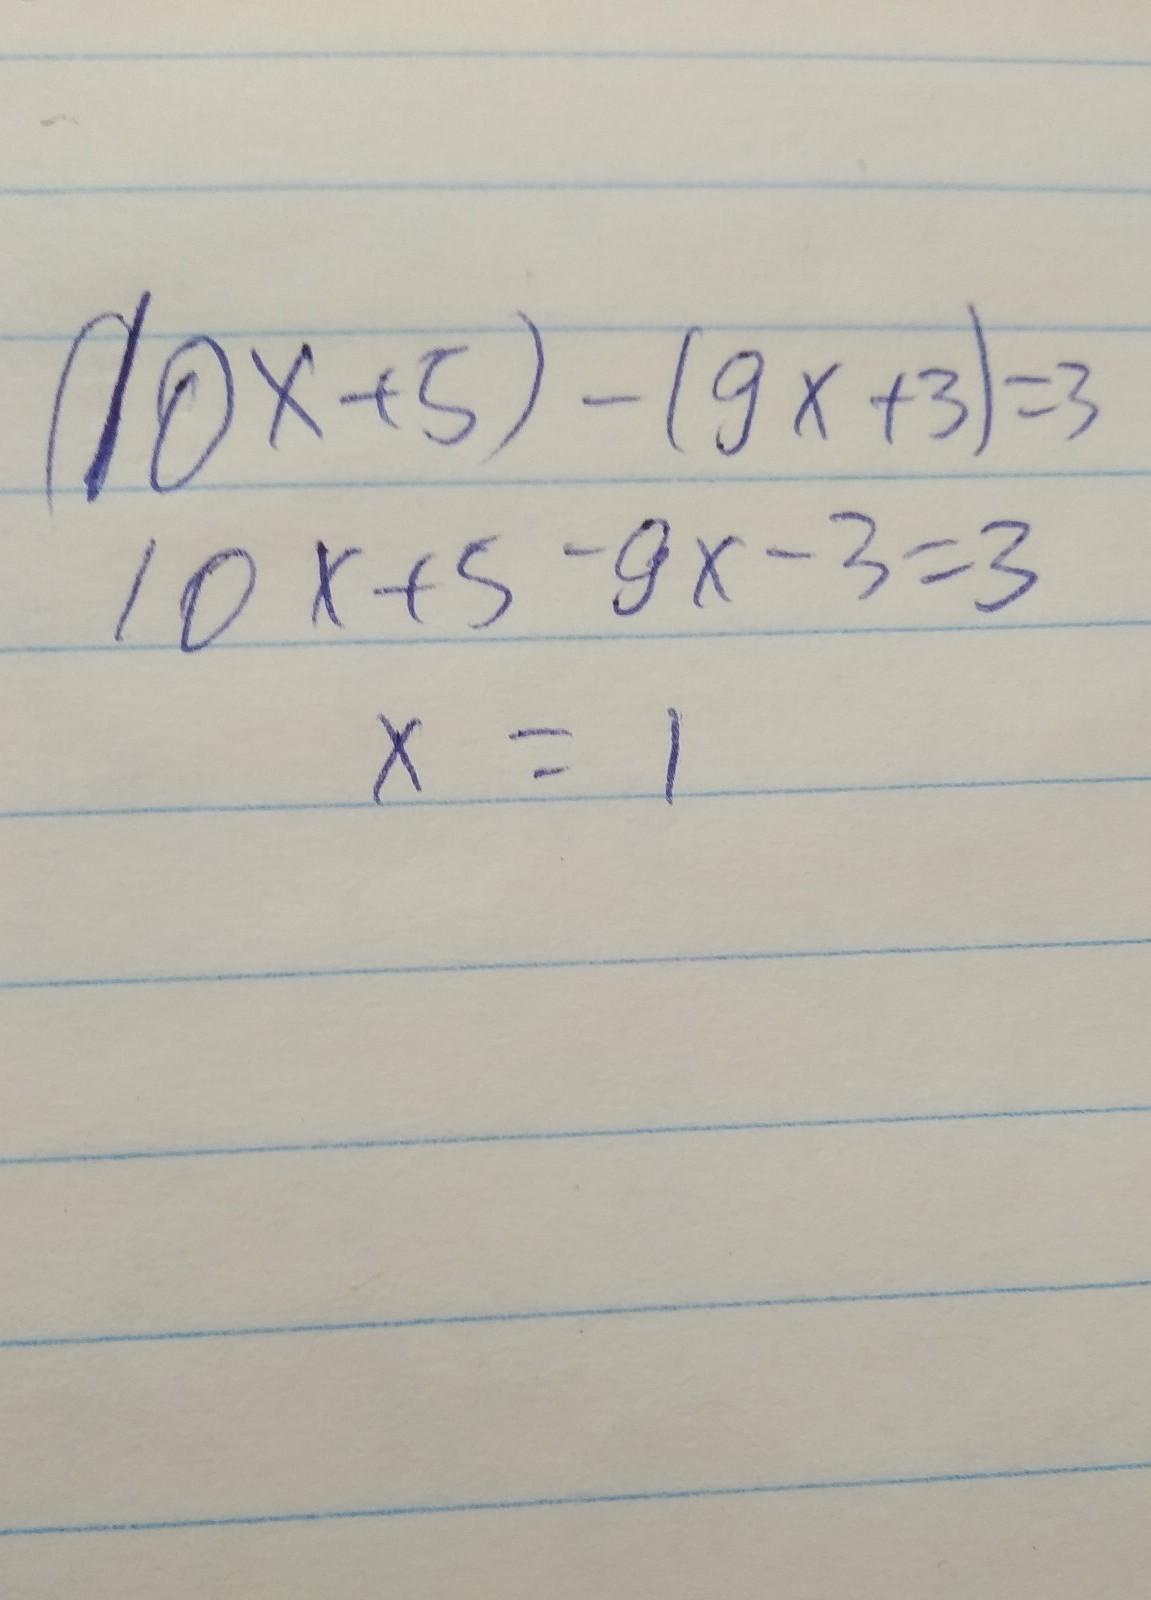 (10x+5)-(9x+3)=3
10x+5-9x-3=3
x = 1